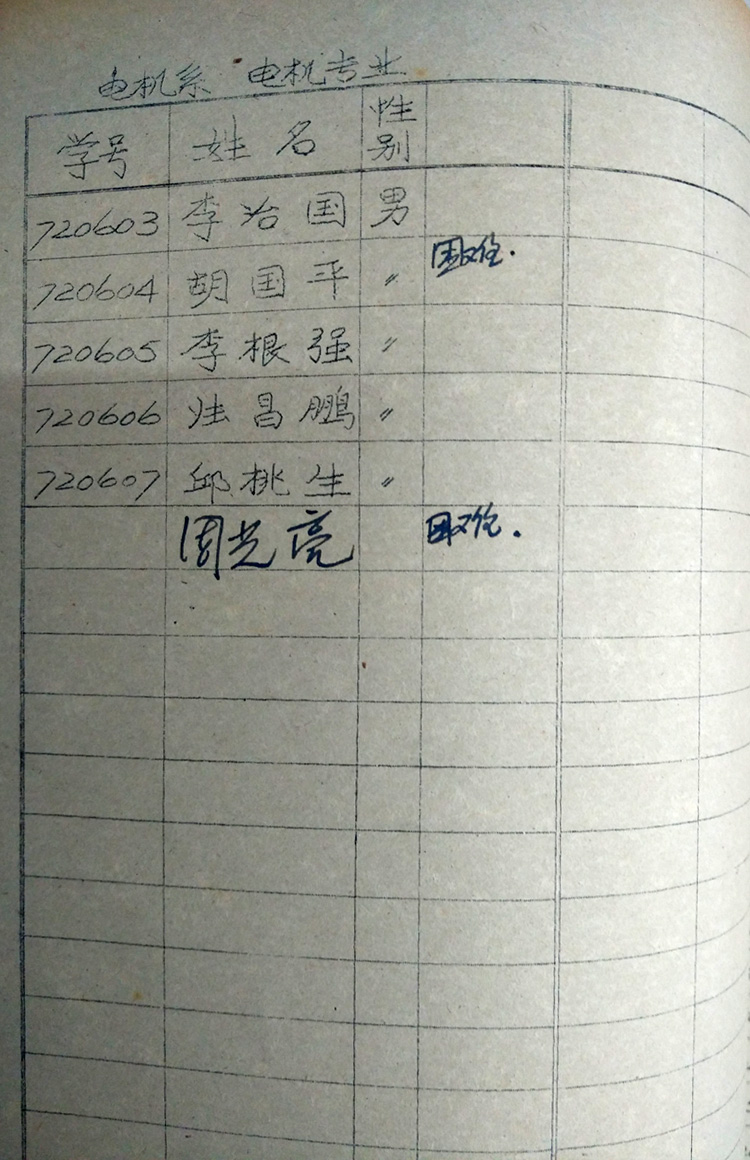 电机系 电机专业
学号 姓名 性别
720603 李治国 男
720604 胡国平 〃 困难.
720605 李根强 〃
720606 汪昌鹏 〃
720607 邱桃生 〃
周光亮 困难.